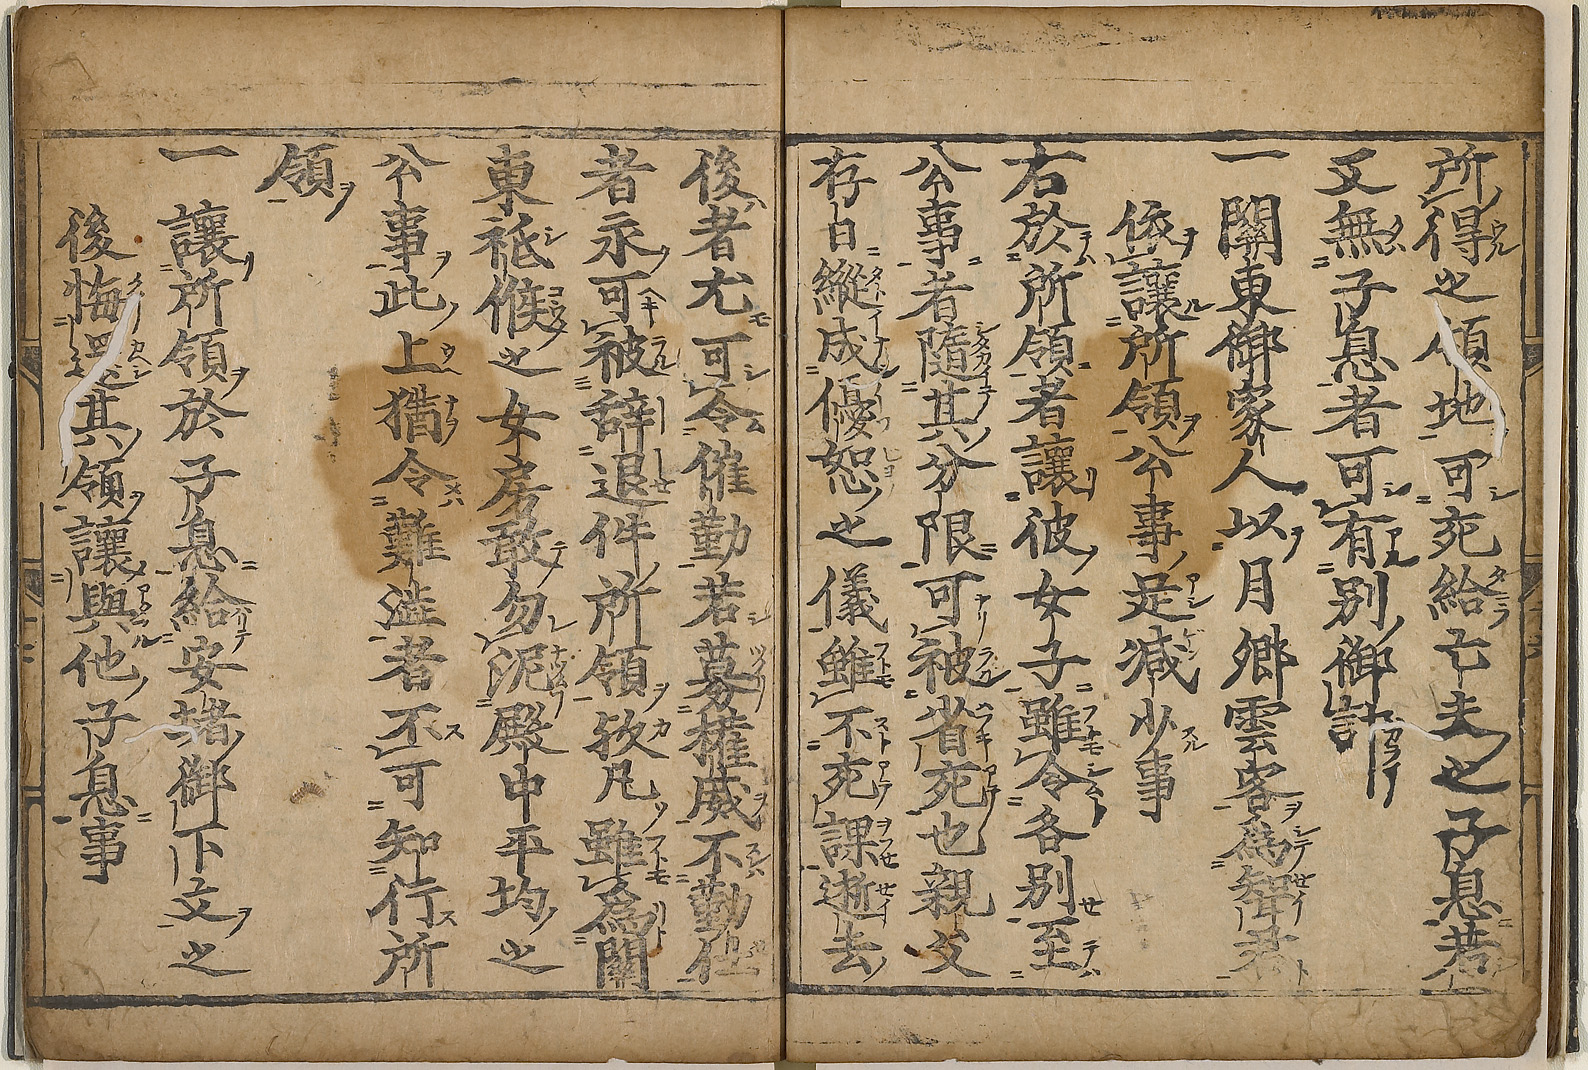 所得之領地可宛給亡夫之子息若
又無子息者可有別御計
一關東御家人以月卿雲客爲聟君
依讓所領公事足減少事
右於所領者讓彼女子雖令各別至
公事者隨其分限可被省宛也親父
存日縱成優恕之儀雖不宛課逝去
後者尤可令催勤若募權威不勤仕
者永可被辞退件所領歟凡雖爲關
東祗候之女房敢勿泥殿中平均之
公事此上猶令難澁者不可知行所
領
一讓所領於子息給安堵御下文之
後悔還其領讓與他子息事